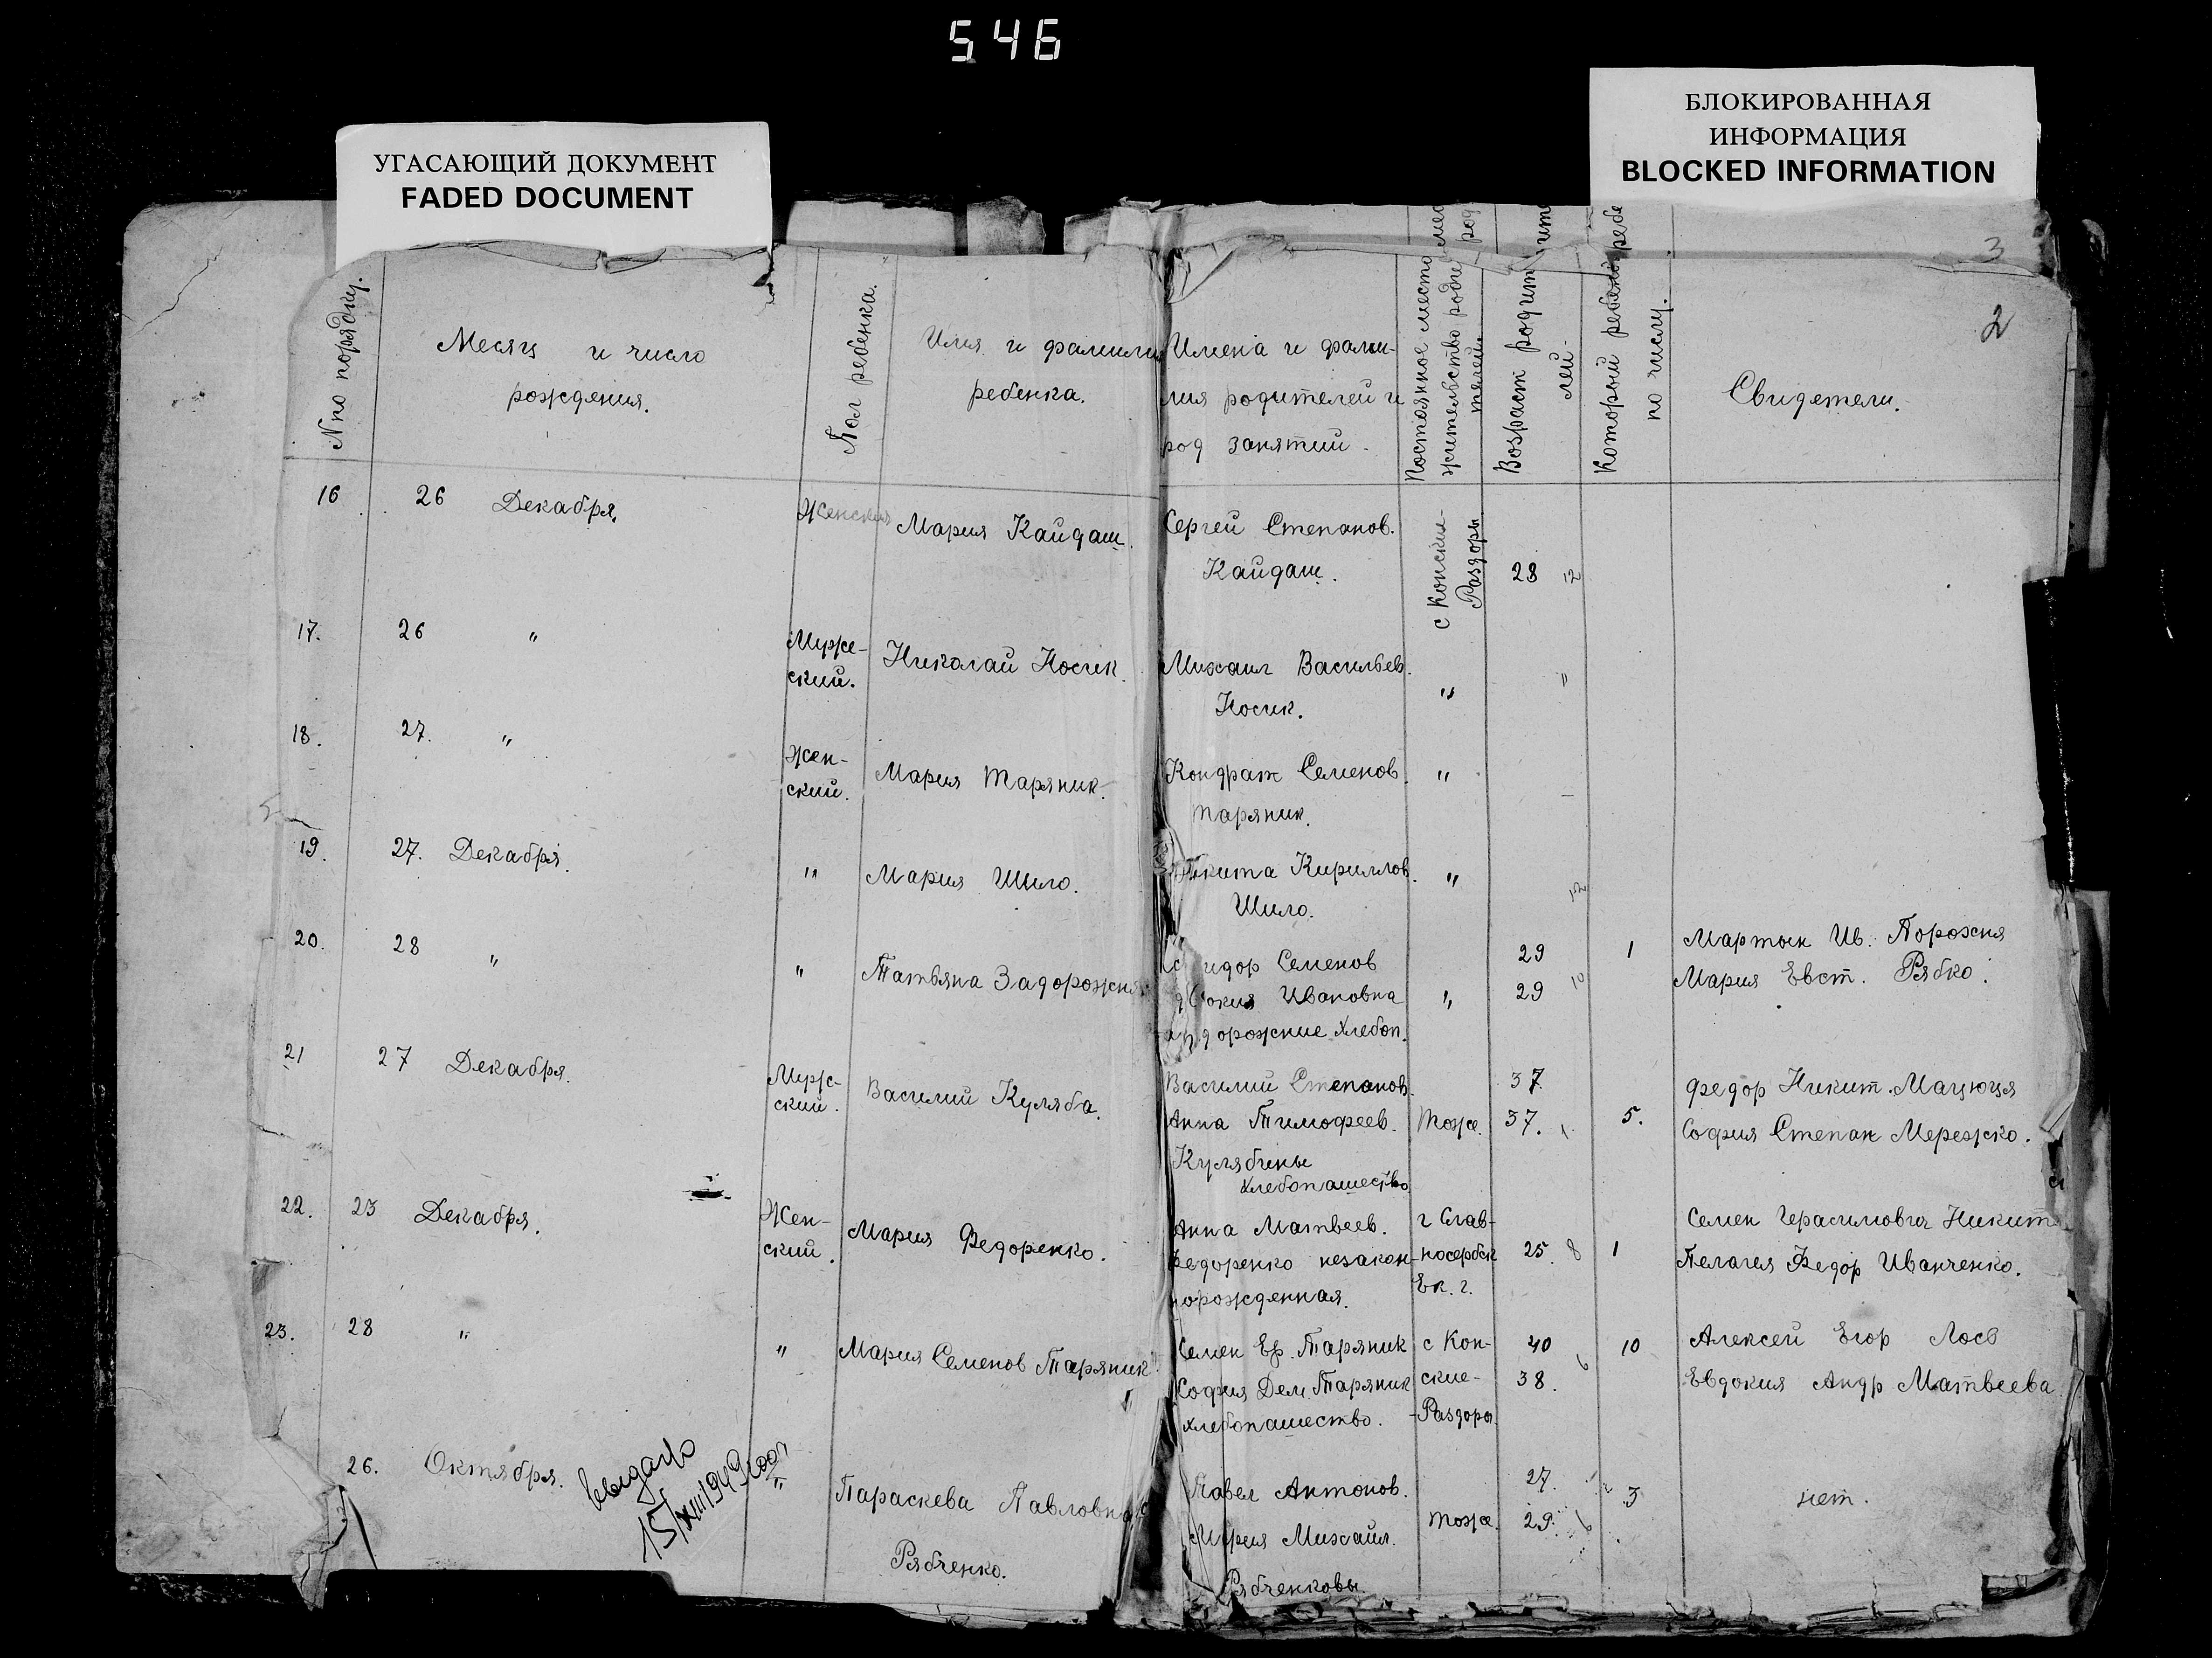 546
УГАСАЮЩИЙ ДОКУМЕНТ
FADED DOCUMENT
БЛОКИРОВАННАЯ
ИНФОРМАЦИЯ
BLOCKED INFORMATION
3
2
№ по порядку.
Месяц и число
рождения.
Пол ребенка.
Имя и фамилия
ребенка.
Имена и фами-
лия родителей и
род занятий.
Постоянное место
жительство роди
телей.
Возраст родит
лей.
Который ребенок
по числу.
Свидетели.
16 26 Декабря. Женский Мария Кайдаш. Сергей Степанов.
Кайдаш. с Конские-
Раздоры 28 12
17. 26 " Муже-
ский. Николай Носик. Михаил Васильев.
Носик. "
18. 27. " Жен-
ский. Мария Таряник. Кондрат Семенов. "
Таряник.
19. 27. Декабря. " Мария Шило. Никита Кириллов. "
Шило. 12
20. 28 " " Татьяна Задорожня Семенов 29 1 Мартын Ив. Порохня
Ивановна " 29 10 Мария Евст. Рябко.
хлебоп.
21 27 Декабря. Муж-
ский. Василий Куляба. Василий Степанов. 37 Федор Никит. Мацюця
Анна Тимофеев. Тоже. 37. 5. София Степан Мережко.
Кулябины
хлебопашество
22. 23 Декабря. Жен-
ский. Мария Федоренко. Анна Матвеев. г Слав- Семен Герасимович Никит
Федоренко незакон- носербск 25. 8 1 Пелагея Федор Иванченко.
норожденная. Ек. г.
23. 28 " " Мария Семенов Таряник Семен Еф. Таряник с Кон- 40 10 Алексей Егор Лось
София Дем. Таряник ские- 38. 6 Евдокия Андр Матвеева
хлебопашество. -Раздоры.
26. Октября. " Параскева Павловна Павел Антонов. 27. 3 нет.
Рябченко. Мария Михаил. Тоже. 29. 6
Рябченковы.